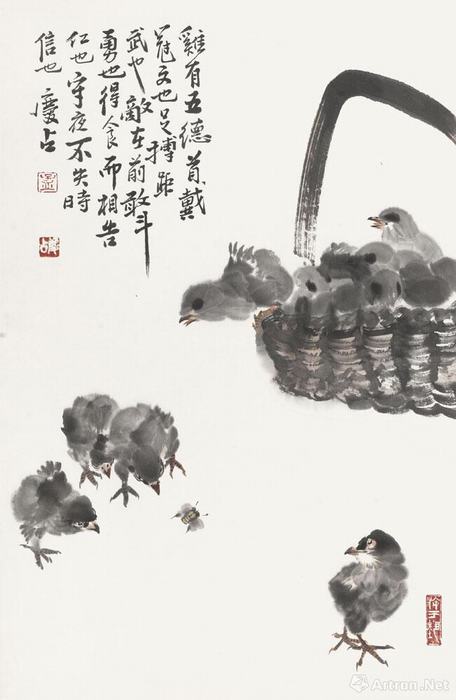 雞有五德首戴
冠文也足搏距
武也敵在前敢斗
勇也得食而相告
仁也守夜不失時
信也 慶占
Artron.Net